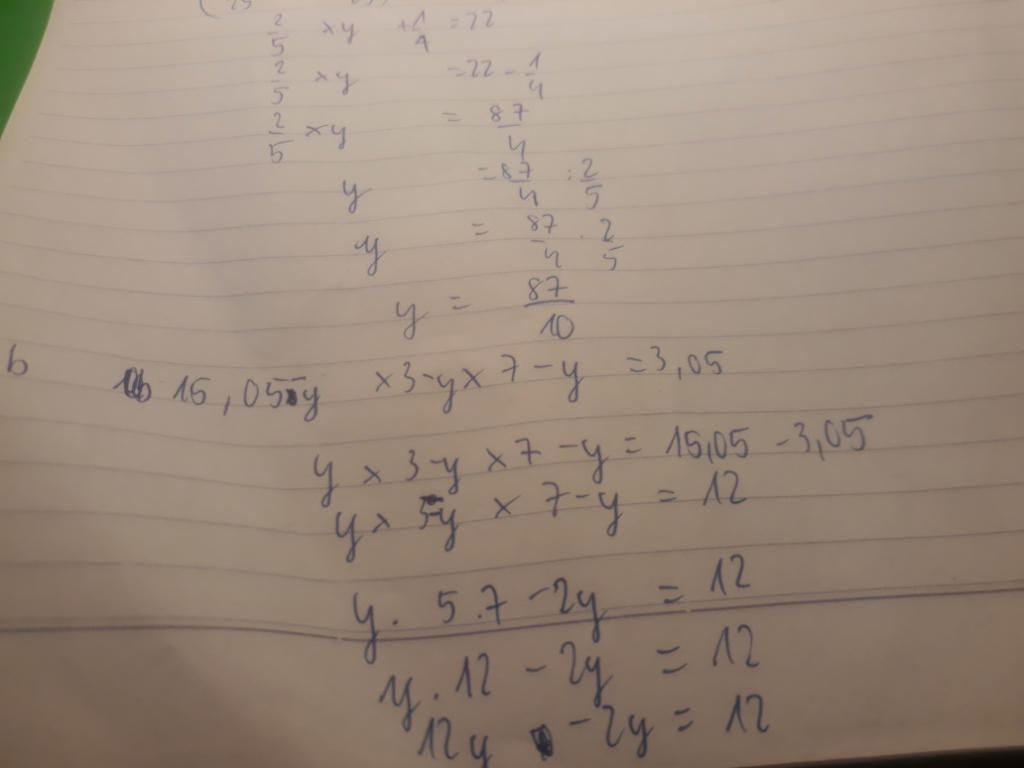 2/5 × y + 1/4 = 22
2/5 × y = 22 - 1/4
2/5 × y = 87/4
y = 87/4 : 2/5
y = 87/4 . 2/5
y = 87/10
b 15,05 - y × 3 - y × 7 - y = 3,05
y × 3 - y × 7 - y = 15,05 - 3,05
y × 5 - y × 7 - y = 12
y . 5 . 7 - 2y = 12
y . 12 - 2y = 12
12y - 2y = 12